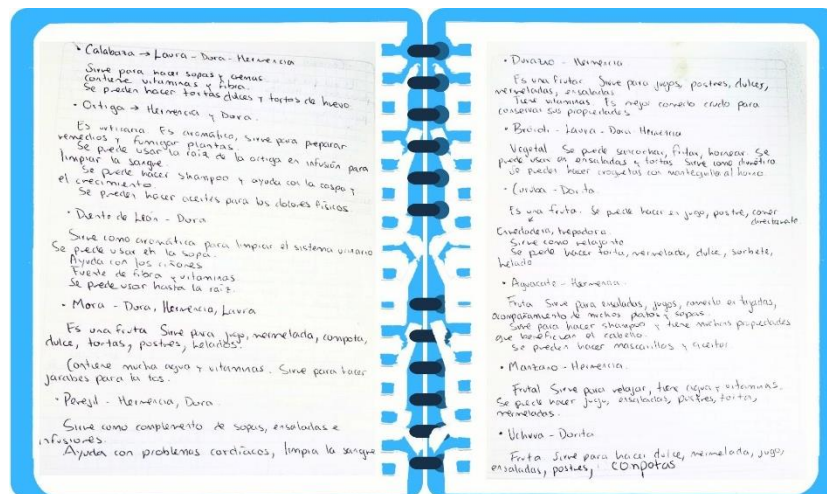 • Calabaza → Laura - Dora - Hermencia
Sirve para hacer sopas y cremas
Contiene vitaminas y fibra.
Se pueden hacer tortas dulces y tortas de huevo
• Ortiga → Hermencia y Dora.
Es urticaria. Es aromático, sirve para preparar
remedios y fumigar plantas.
Se puede usar la raiz de la ortiga en infusión para
limpiar la sangre.
Se puede hacer shampoo y ayuda con la caspa y
el crecimiento.
Se pueden hacer aceites para los dolores físicos.
• Diente de León - Dora
Sirve como aromática para limpiar el sistema urinario
Se puede usar en la sopa.
Ayuda con los riñones
Fuente de fibra y vitaminas
Se puede usar hasta la raíz.
• Mora - Dora, Hermencia, Laura
Es una fruta Sirve para jugo, mermelada, compota,
dulce, tortas, postres, helados.
Contiene mucha agua y vitaminas. Sirve para hacer
jarabes para la tos.
• Perejil - Hermencia, Dora.
Sirve como complemento de sopas, ensaladas e
infusiones.
Ayuda con problemas cardíacos, limpia la sangre
• Durazno - Hermencia
Es una frutar. Sirve para jugos, postres, dulces,
mermeladas, ensaladas
Tiene vitaminas. Es mejor comerlo crudo para
conservar sus propiedades
• Brócoli - Laura - Dora Hermencia
Vegetal Se puede sancochar, fritar, hornear. Se
puede usar en ensaladas y tortas Sirve como diurético
Se pueden hacer croquetas con mantequilla al horno
• Curuba - Dorita.
Es una fruta. Se puede hacer en jugo, postre, comer
directamente
Enredadera, trepadora.
Sirve como relajante
Se puede hacer torta, mermelada, dulce, sorbete,
helado
• Aguacate - Hermencia.
Fruta Sirve para ensaladas, jugos, comerlo en tajadas,
acompañamiento de muchos platos y sopas.
Sirve para hacer shampoo y tiene muchas propiedades
que benefician el cabello.
Se pueden hacer mascarillas y aceites.
• Manzano - Hermencia.
Frutal Sirve para relajar, tiene agua y vitaminas.
Se puede hacer jugo, ensaladas, postres, tortas,
mermeladas.
• Uchuva - Dorita
Fruta Sirve para hacer dulce, mermelada, jugo,
ensaladas, postres, compotas